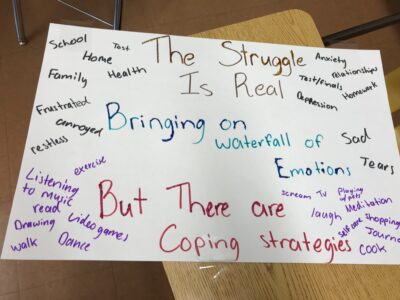 The Struggle
Is Real
Bringing on
waterfall of
Emotions
But There are
Coping strategies
School
Test
Home
Family
Health
Frustrated
annoyed
restless
Anxiety
relationships
Test/finals
Homework
Depression
Sad
Tears
exercise
Listening
to music
read
Drawing
video games
walk
Dance
scream
TV
Playing
Meditation
laugh
self care
shopping
Journal
Cook